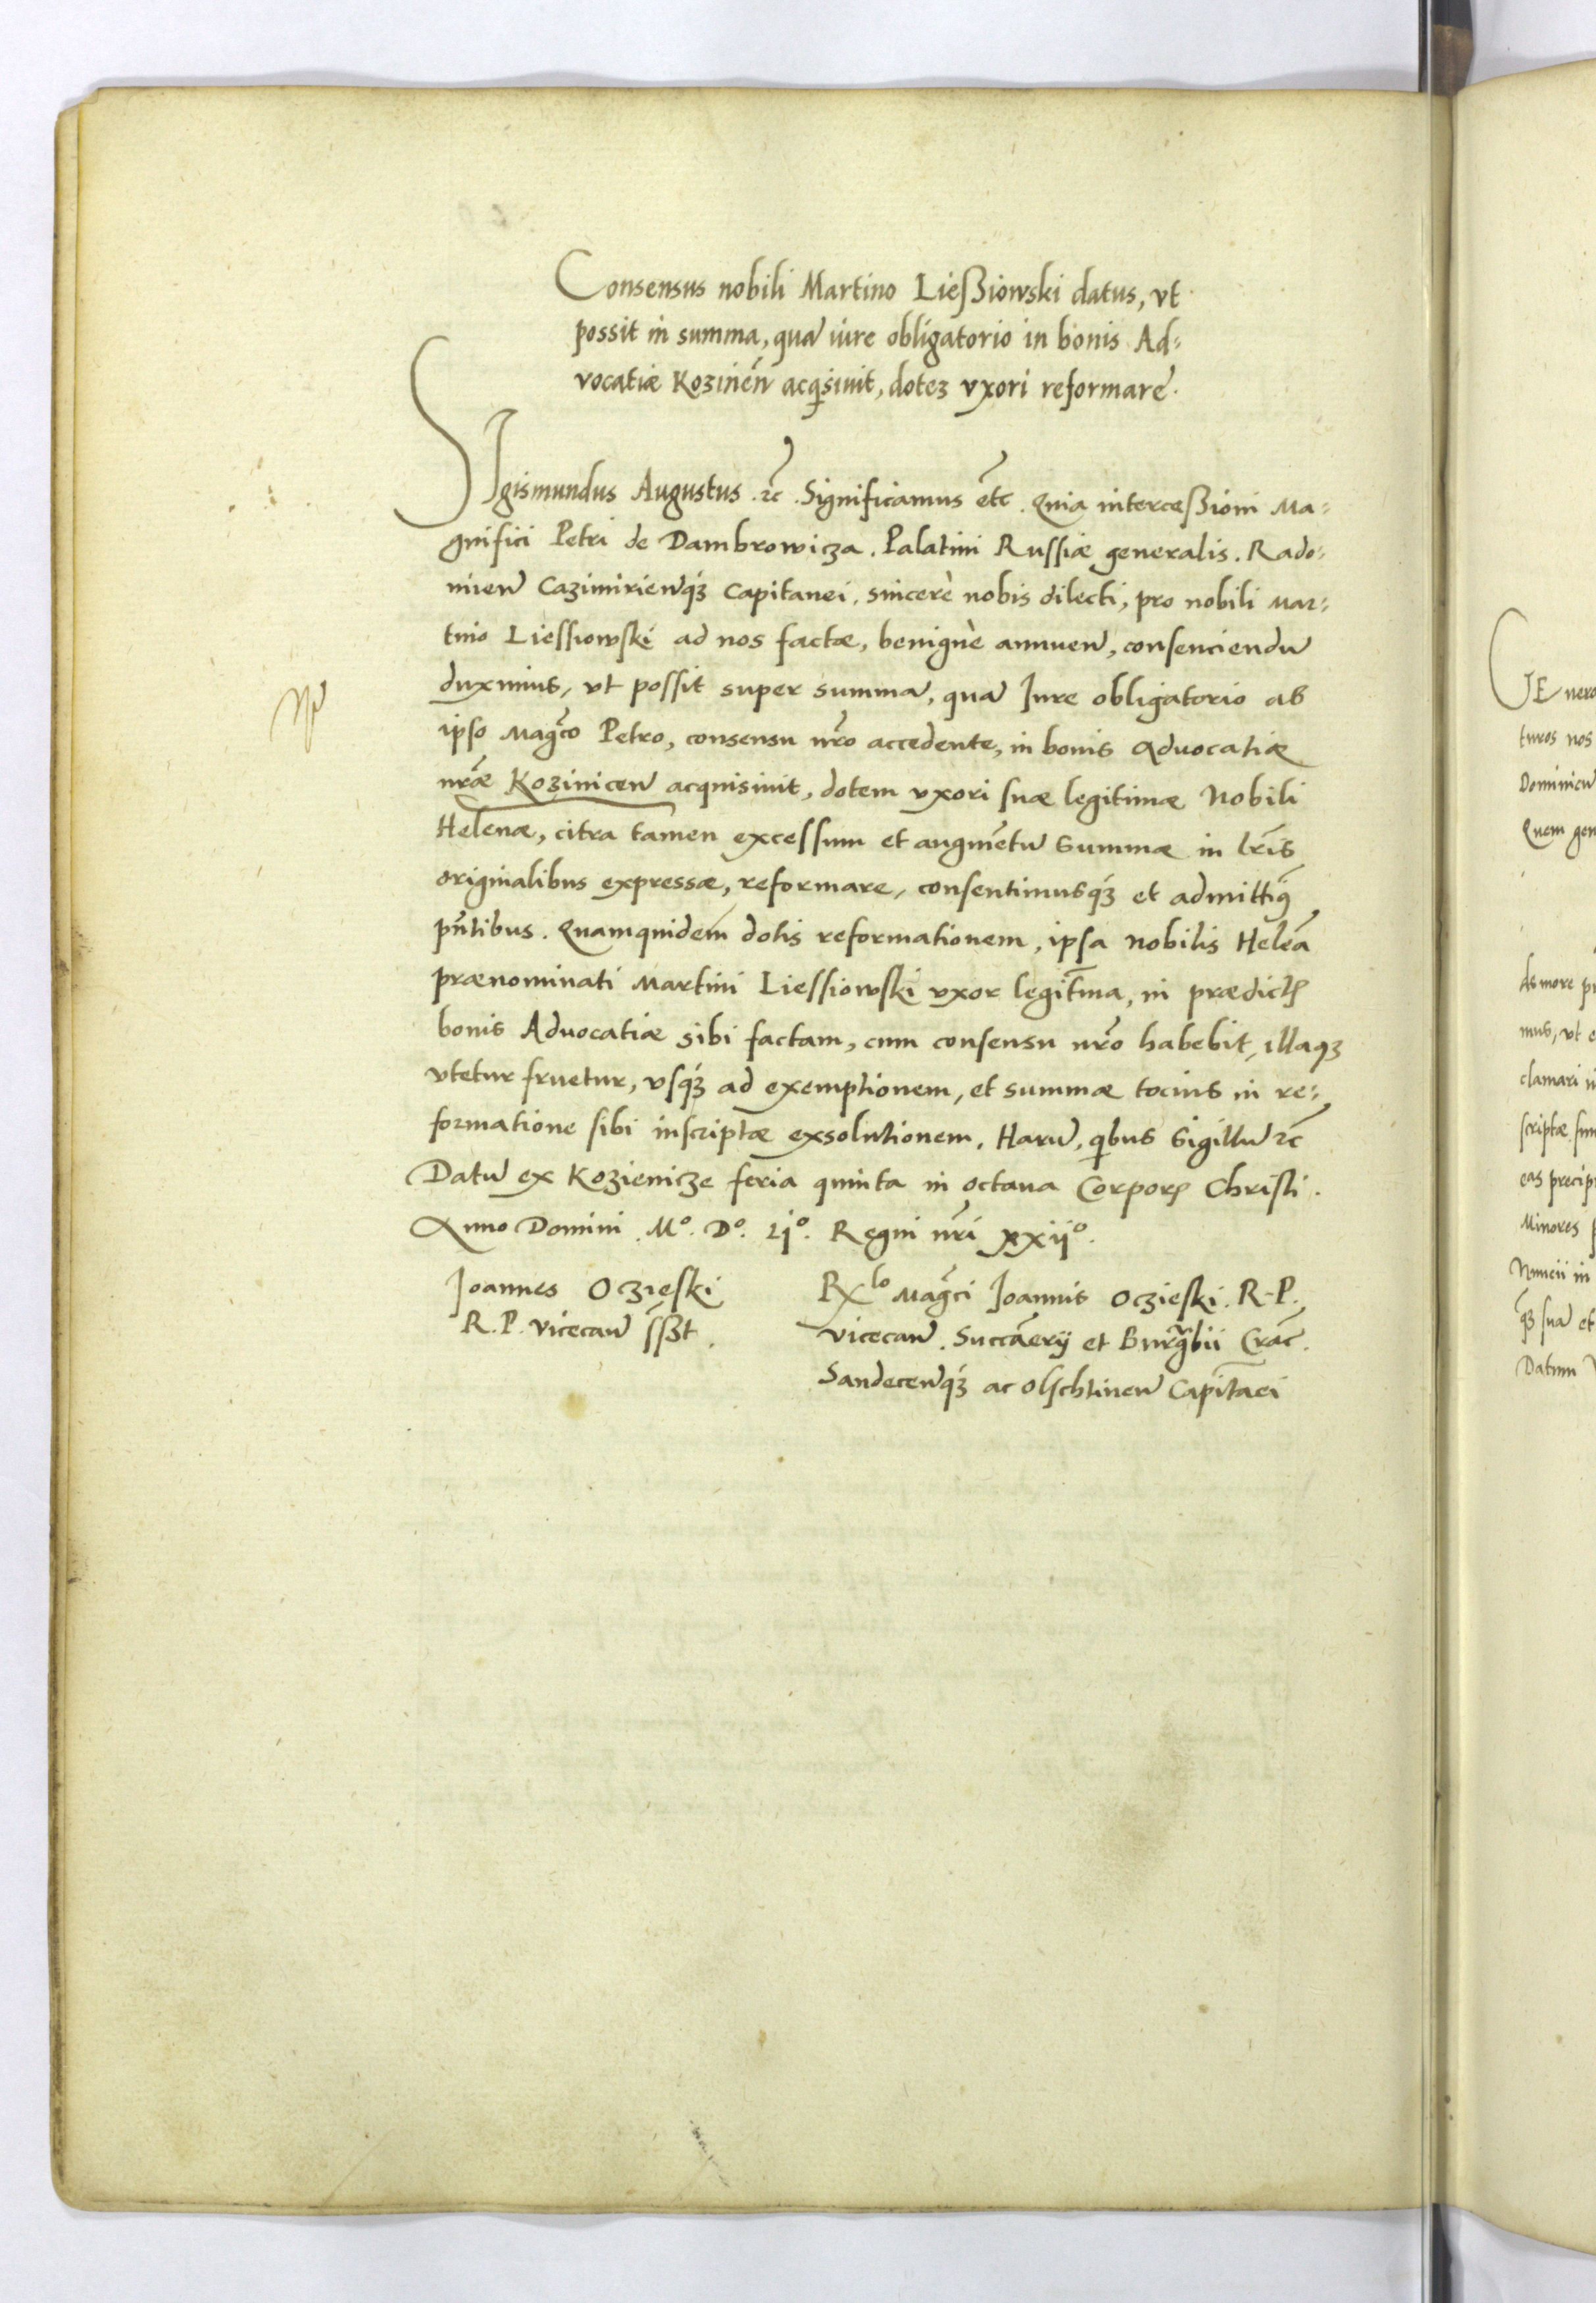 Consensus nobili Martino Ließiowski datus, vt
possit in summa, quã iure obligatorio in bonis Ad:
vocatiæ Kozineñ acq̃siuit, dotez vxori reformare.
SIgismundus Augustus .rc̃. Significamus etc̃. Quia interceßioni Ma:
gnifici Petri de Dambrowicza. Palatini Russiæ generalis. Rado:
mieñ Cazimirieñq́ꝫ Capitanei. sincerè nobis dilecti, pro nobili Mar:
tino Liessiowski ad nos factæ, benignè annueñ, consenciendũ
duximus, vt possit super summa, quã Iure obligatorio ab
ipso Mag̃co Petro, consensu nr̃o accedente, in bonis Aduocatiæ
nr̃æ Koziniceñ acquisiuit, dotem vxori suæ legitimæ Nobili
Helenæ, citra tamen excessum et augmẽtũ Summæ in lr̃is
originalibus expressæ, reformare, consentimusq́ꝫ et admittiꝰ
pñtibus. Quamquidem dotis reformationem, ipsa nobilis Helẽa
prænominati Martini Liessiowski vxor legit̃ima, in prædictꝭ
bonis Aduocatiæ sibi factam, cum consensu nr̃o habebit, illaqꝫ
vtetur fruetur, vsq́ꝫ ad exemptionem, et summæ tocius in re:
formatione sibi inscriptæ exsolutionem. Harũ, q̃bus Sigillũ rc̃
Datũ ex Kozienicze feria quinta in octaua Corporꝭ Christi.
Anno Domini. Mº. Dº. Ljº. Regni nr̃i xxijº.
Joannes Oczieski
R. P. Vicecañ ss̃ꝫt.
Rx lo Mag̃ci Joannis Oczieski. R. P.
Vicecañ. Succãerij et Burg̃bii Crac̃.
Sandeceñq́ꝫ ac Olschtineñ Capit̃aei
GE nero
turos nos
Dominicũ
Quem gen
As more pr
mus, vt e
clamari
scriptæ sum
eas precip
Minores
Nuncii in
q́ꝫ suã et
Datum